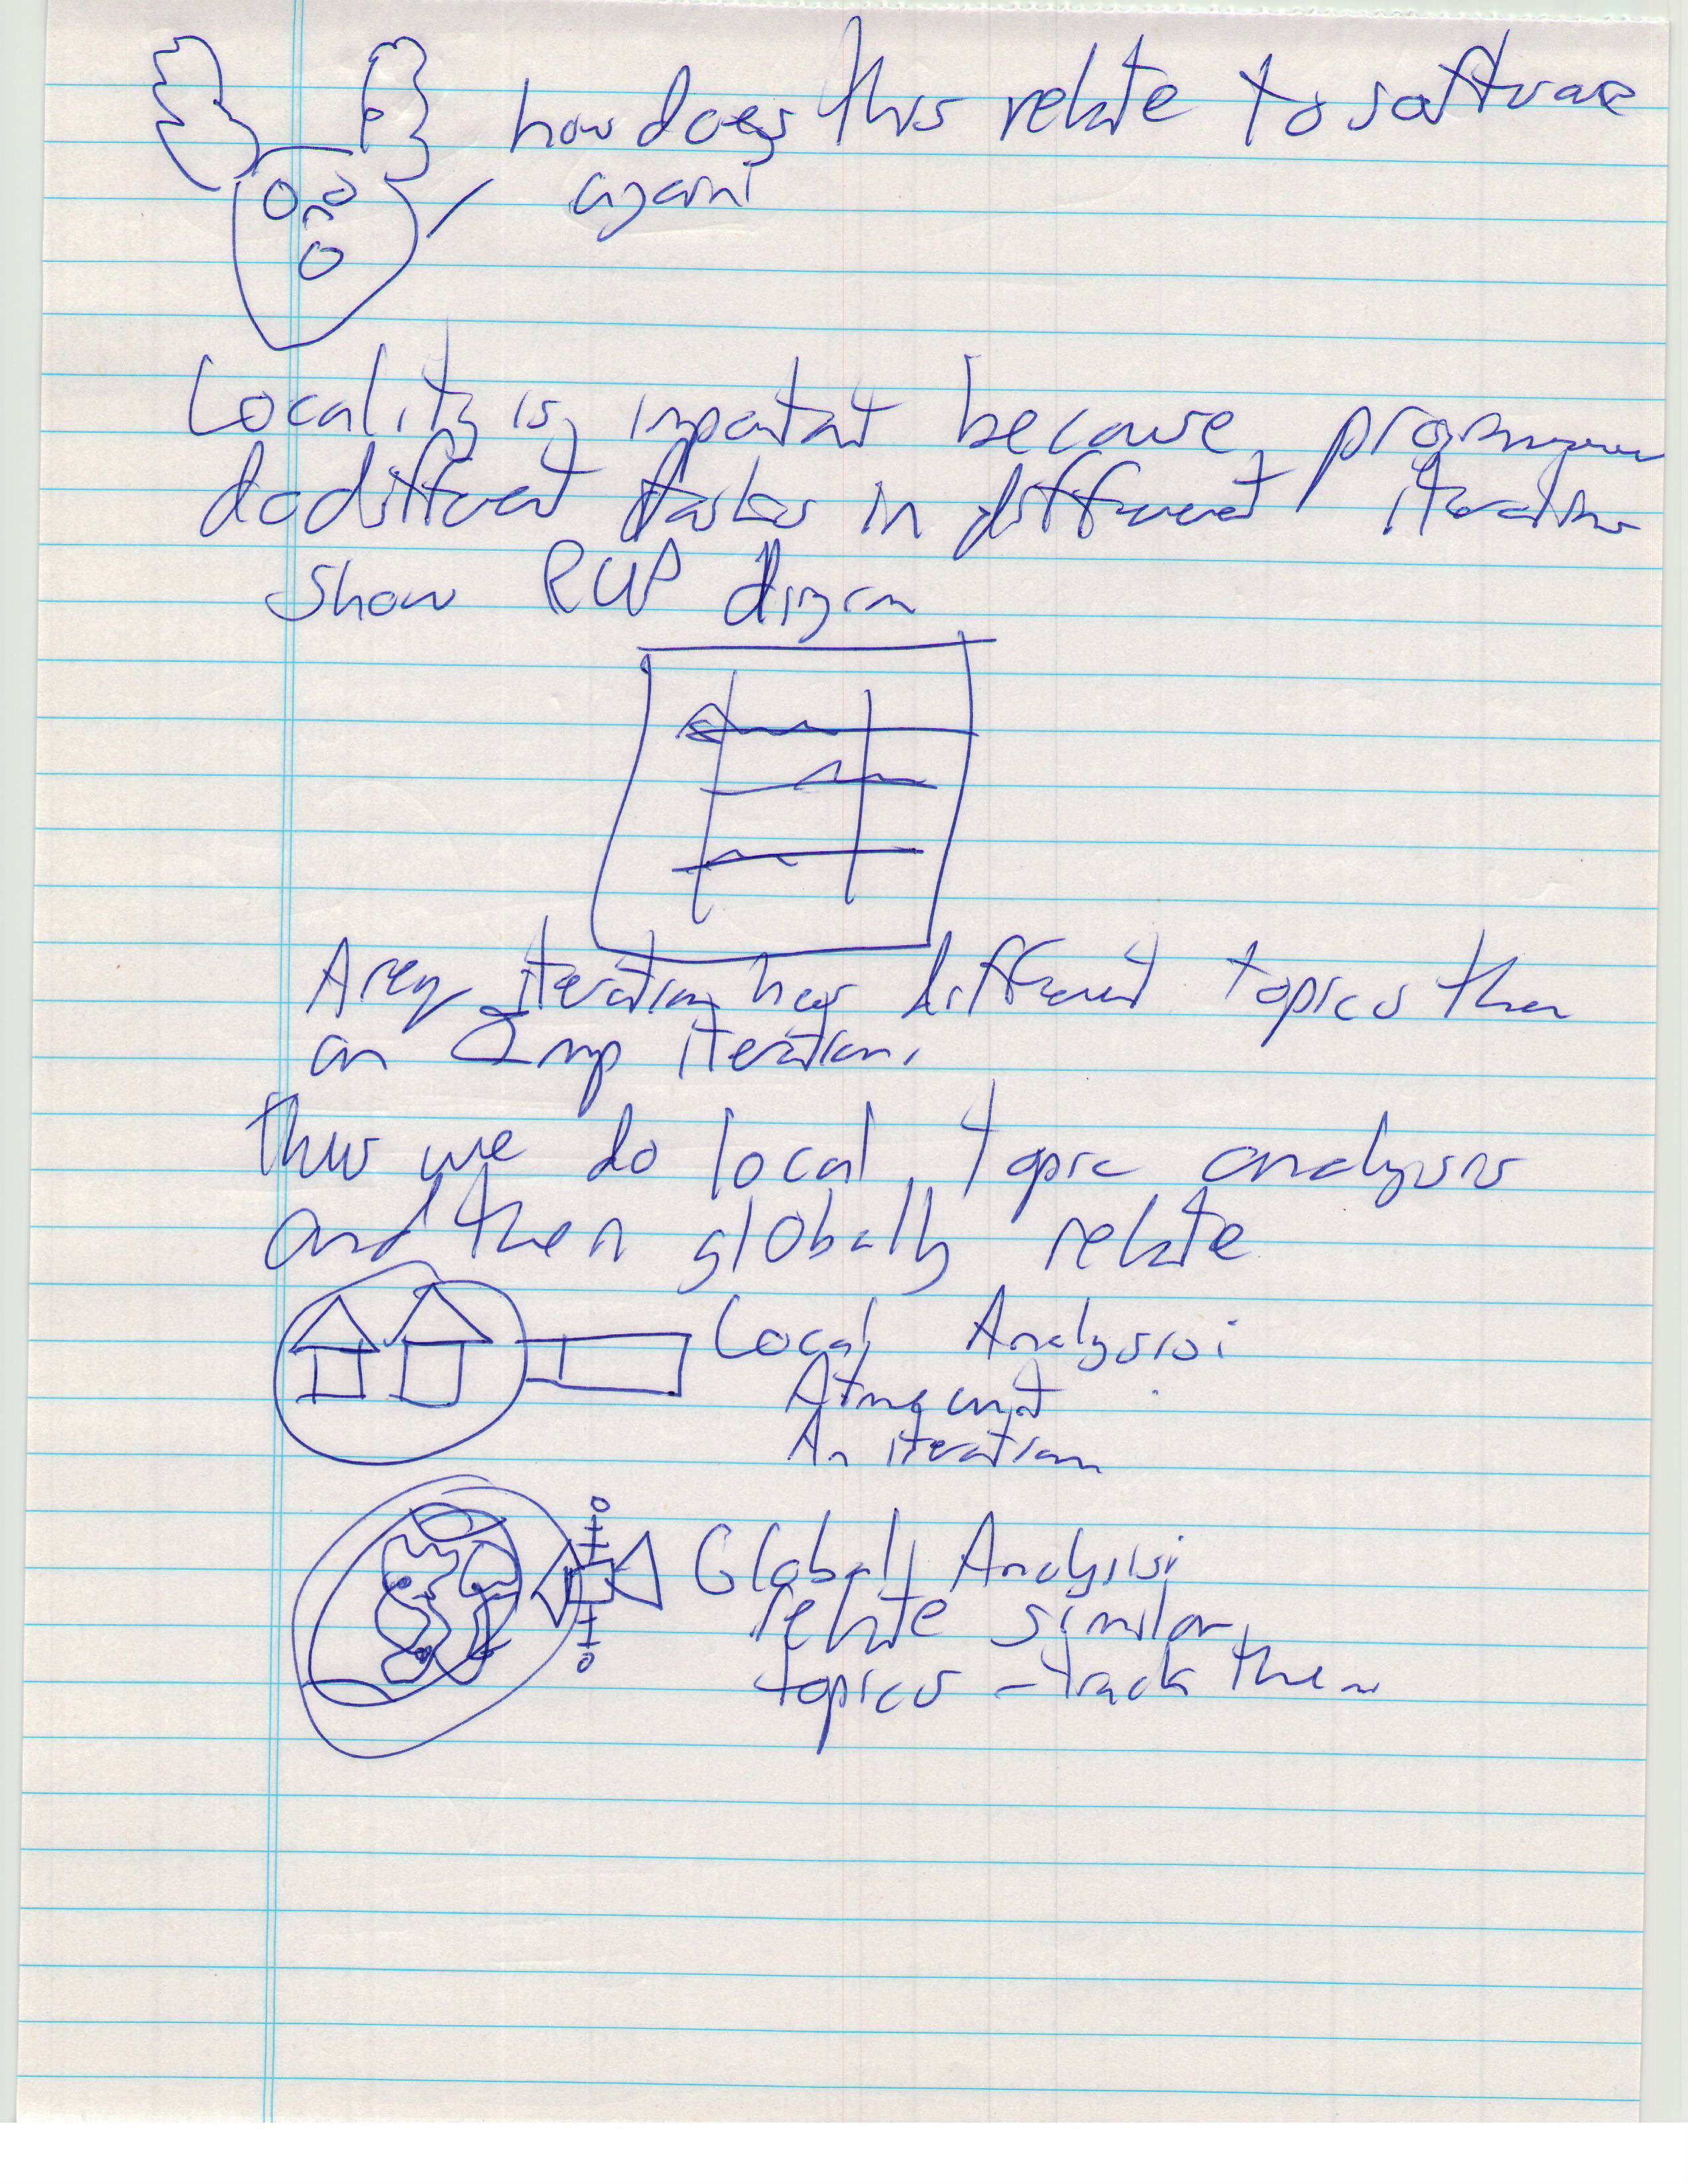 how does this relate to software
again
Locality is important because programmers
do different tasks in different iterations
Show RUP diagram
A req iteration has different topics then
an Imp iteration.
thus we do local topic analysis
and then globally relate
Local Analysis:
A time unit
An iteration
Global Analysis:
relate similar
topics - track them